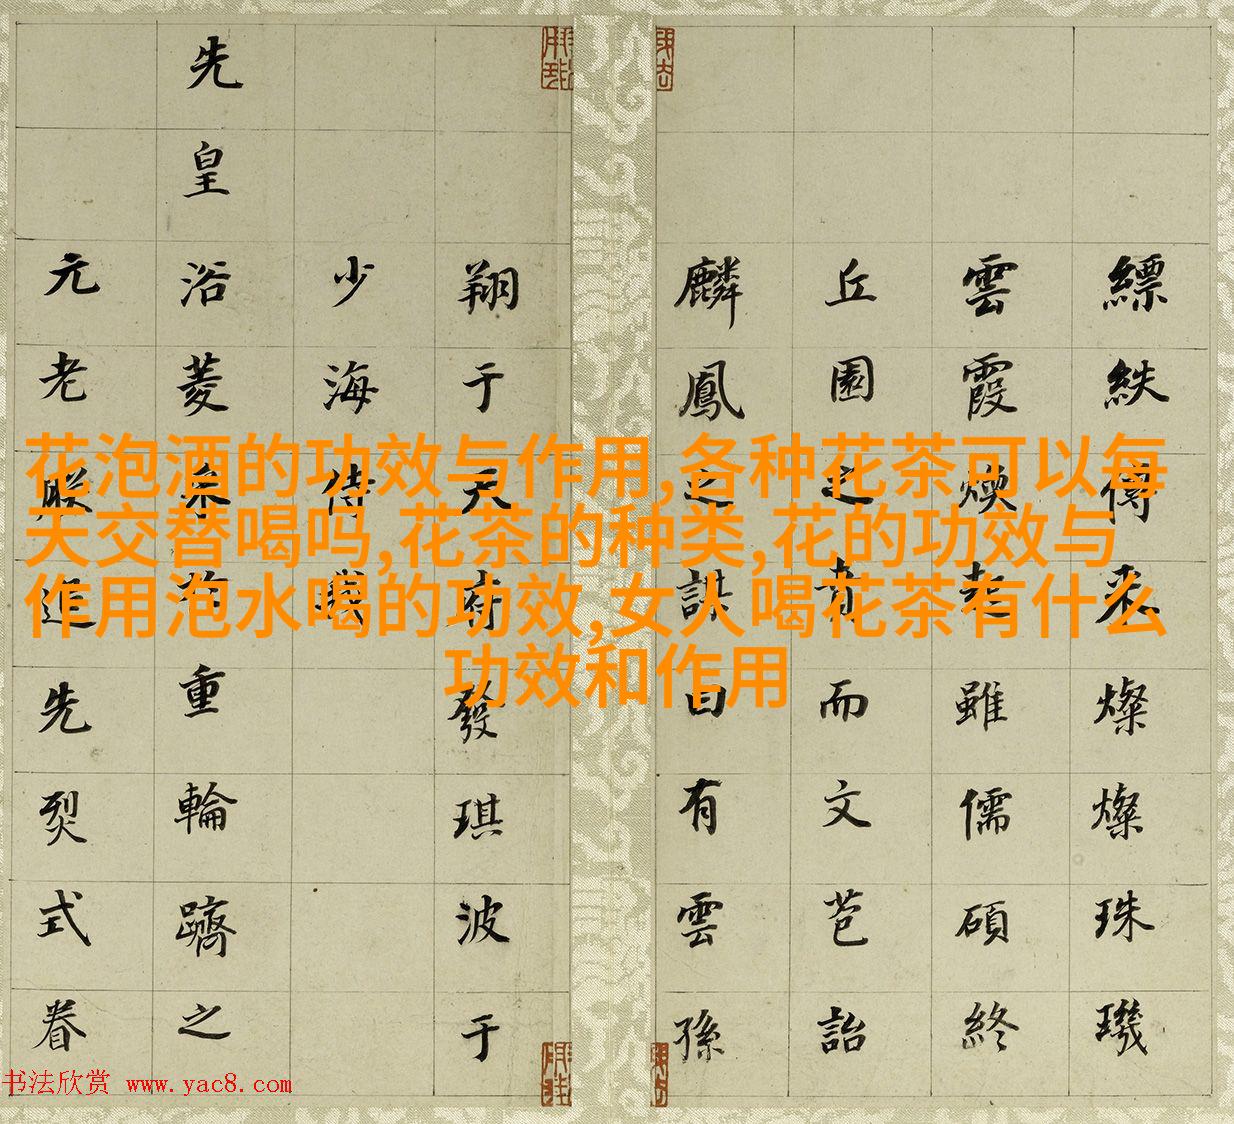 花泡酒的功效与作用,各种花茶可以每
天交替喝吗,花茶的种类,花的功效与
作用泡水喝的功效,女人喝花茶有什么
功效和作用
縹紩傳来燦燦珠璣
雲霞煥老雖儒碩終
丘園之賁而文苞詒
麟鳳之謀曰有雲孫
翔于天府發琪波于
少海侍
先皇浴菱重輪躋之
元老追先烈式眷
书法欣赏 www.yac8.com